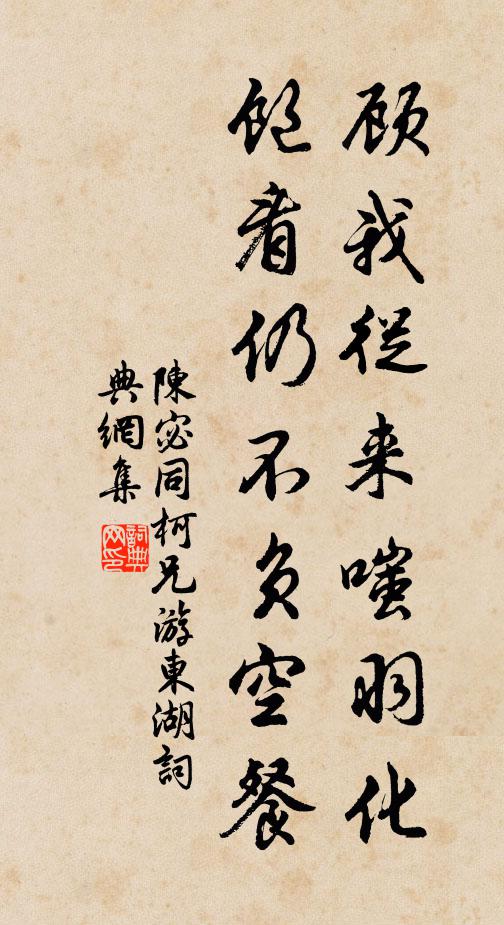 顾我從来嗤羽化
飽看仍不负空餐
陳宓同柯兄游東湖詞
典網集
詞典
网印